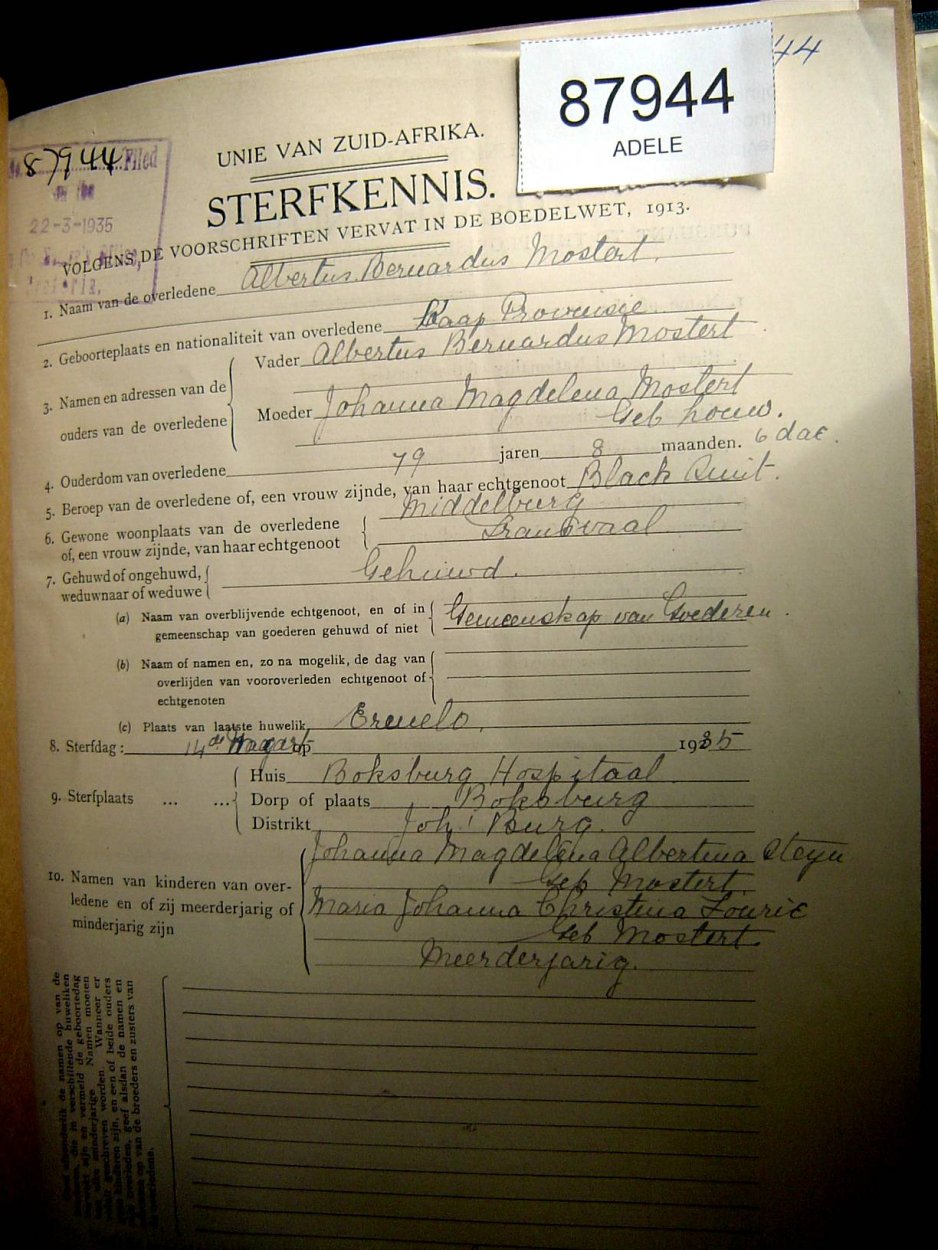 44
87944
ADELE
87944 Filed
on the
22-3-1935
UNIE VAN ZUID-AFRIKA.
STERFKENNIS.
VOLGENS DE VOORSCHRIFTEN VERVAT IN DE BOEDELWET, 1913.
1. Naam van de overledene Albertus Bernardus Mostert.
2. Geboorteplaats en nationaliteit van overledene Kaap Provinsie
3. Namen en adressen van de ouders van de overledene
Vader Albertus Bernardus Mostert
Moeder Johanna Magdelena Mostert
Geb Louw.
4. Ouderdom van overledene 79 jaren 8 maanden. 6 dae.
5. Beroep van de overledene of, een vrouw zijnde, van haar echtgenoot Black Smit.
6. Gewone woonplaats van de overledene of, een vrouw zijnde, van haar echtgenoot
Middelburg
Transvaal
7. Gehuwd of ongehuwd, weduwnaar of weduwe Gehuwd.
(a) Naam van overblijvende echtgenoot, en of in gemeenschap van goederen gehuwd of niet Gemeenskap van Goederen.
(b) Naam of namen en, zo na mogelik, de dag van
overlijden van vooroverleden echtgenoot of
echtgenoten
(c) Plaats van laatste huwelik Ermelo.
8. Sterfdag: 14de op 1935
9. Sterfplaats ... ...
Huis Boksburg Hospitaal
Dorp of plaats Boksburg
Distrikt Joh' Burg.
10. Namen van kinderen van overledene en of zij meerderjarig of minderjarig zijn
Johanna Magdelena Albertina Steyn
Geb Mostert
Maria Johanna Christina Lourie
Geb Mostert
Meerderjarig.